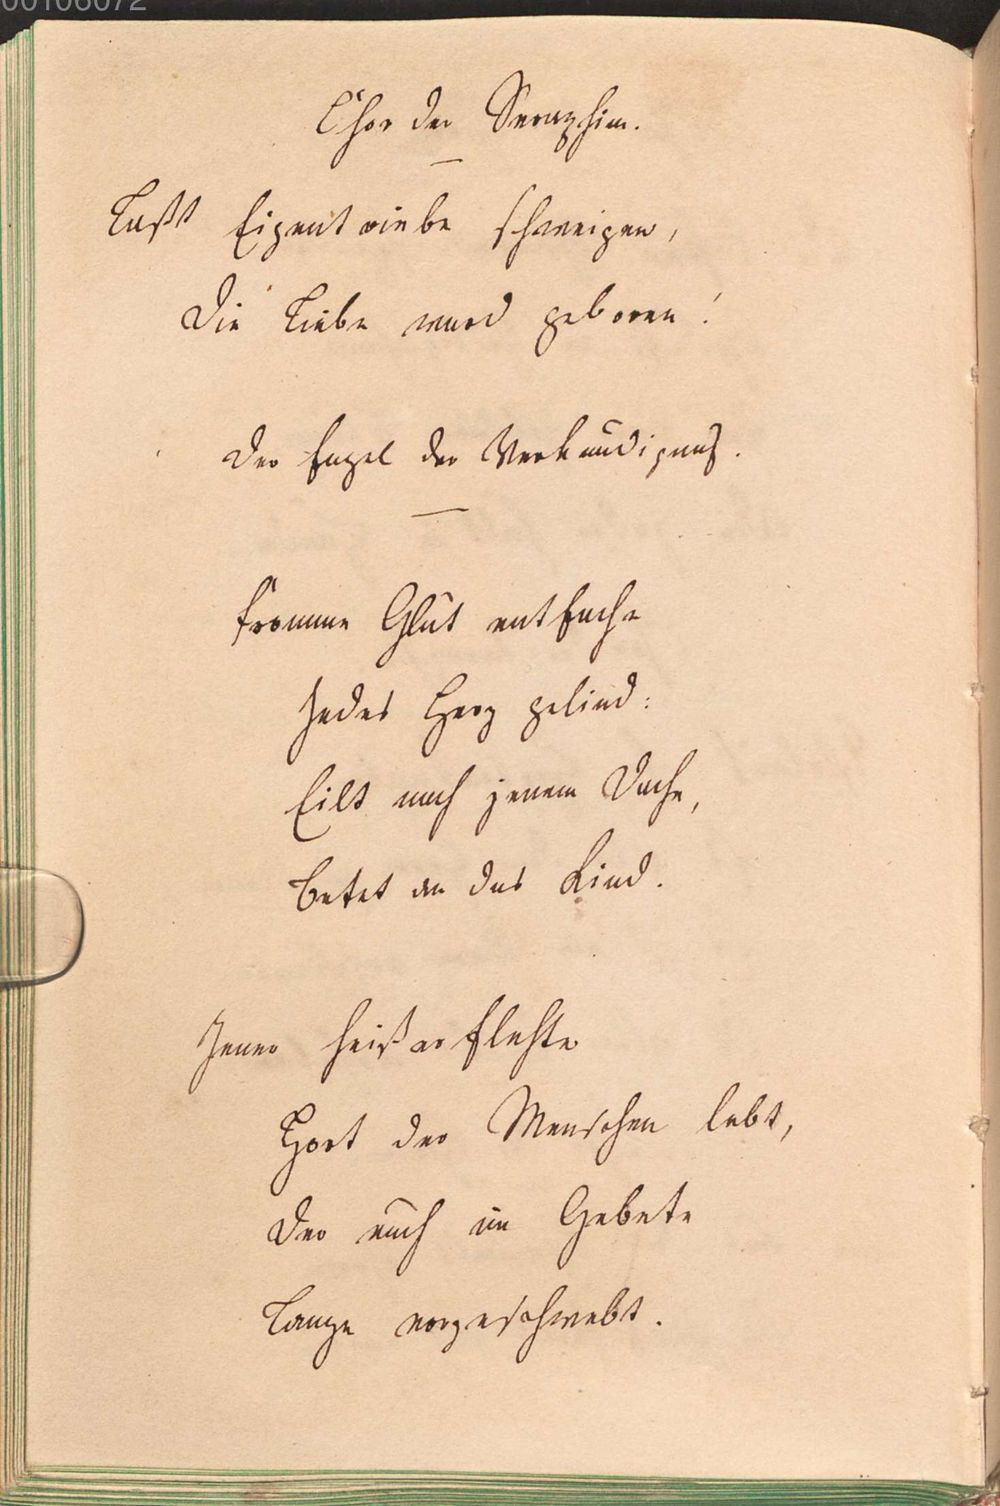 00106072
Chor der Seraphim.
Laßt Eigentriebe schweigen,
Die Liebe ward geboren!
Der Engel der Verkündigung.
Fromme Glut entfache
Jedes Herz gelind:
Eilt nach jenem Dache,
Betet an das Kind.
Jener heißerflehte
Hort der Menschen lebt,
Der euch im Gebete
Lange vorgeschwebt.